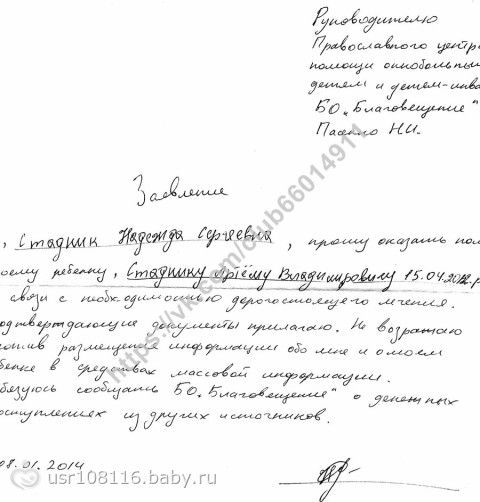 Руководителю
Православного центра
помощи онкобольным
детям и детям-инва
БО „Благовещение"
Паенко Н.И.
Заявление
, Стадник Надежда Сергеевна, прошу оказать пом
оему ребенку, Стаднику Юрієму Владимировичу 15.04.2012 г.р
связи с необходимостью дорогостоящего лечения.
одтверждающие документы прилагаю. Не возражаю
отив размещения информации обо мне и о моем
бенке в средствах массовой информации.
бязуюсь сообщать БО „Благовещение" о денежных
оступлениях из других источников.
08.01.2014
https://vk.com/club66014911
usr108116.baby.ru